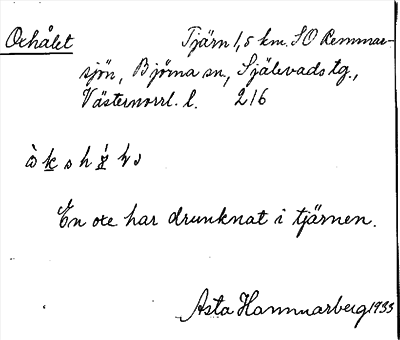 Oxhålet Tjärn 1,5 km. SO Remmar-
sjön, Björna sn, Själevads tg.,
Västernorrl. l. 216
En oxe har drunknat i tjärnen.
Asta Hammarberg 1933